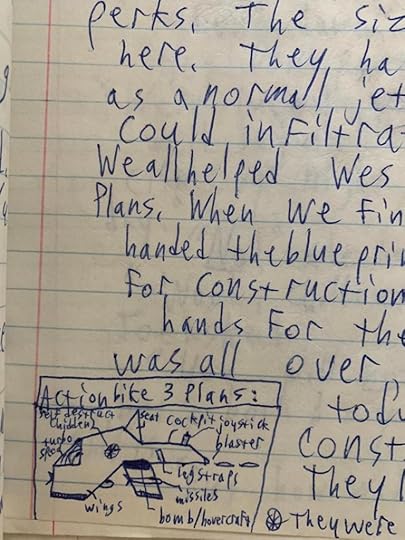 perks. The siz
here. They ha
as a normal jet
could infiltra
We all helped Wes
Plans. When we fin
handed the blue prin
for construction
hands for the
was all over
Action bike 3 Plans:
self destruct
(hidden)
seat
cockpit
joystick
blaster
turbo
leg straps
missiles
wings
bomb/hovercraft
toda
const
They
They were